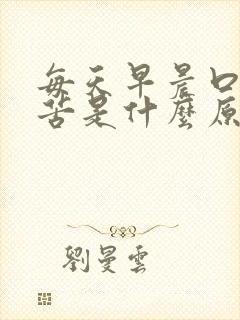 每天早晨口
苦是什麼原
劉曼雲